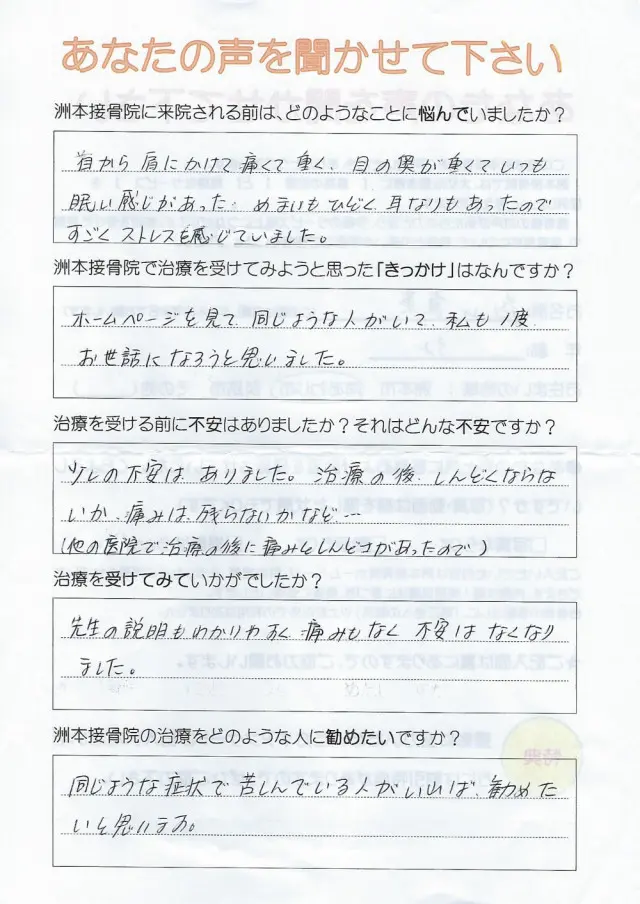 あなたの声を聞かせて下さい
洲本接骨院に来院される前は、どのようなことに悩んでいましたか？
首から肩にかけて痛くて重く、目の奥が重くていつも
眠い感じがあった。めまいもひどく、耳なりもあったので
すごくストレスを感じていました。
洲本接骨院で治療を受けてみようと思った「きっかけ」はなんですか？
ホームページを見て、同じような人がいて、私も1度、
お世話になろうと思いました。
治療を受ける前に不安はありましたか？それはどんな不安ですか？
少しの不安は、ありました。治療の後、しんどくならな
いか、痛みは、残らないかなど…
(他の医院で治療の後に痛みとしんどさがあったので)
治療を受けてみていかがでしたか？
先生の説明もわかりやすく、痛みもなく、不安はなくなり
ました。
洲本接骨院の治療をどのような人に勧めたいですか？
同じような症状で苦しんでいる人がいれば、勧めた
いと思います。
特典